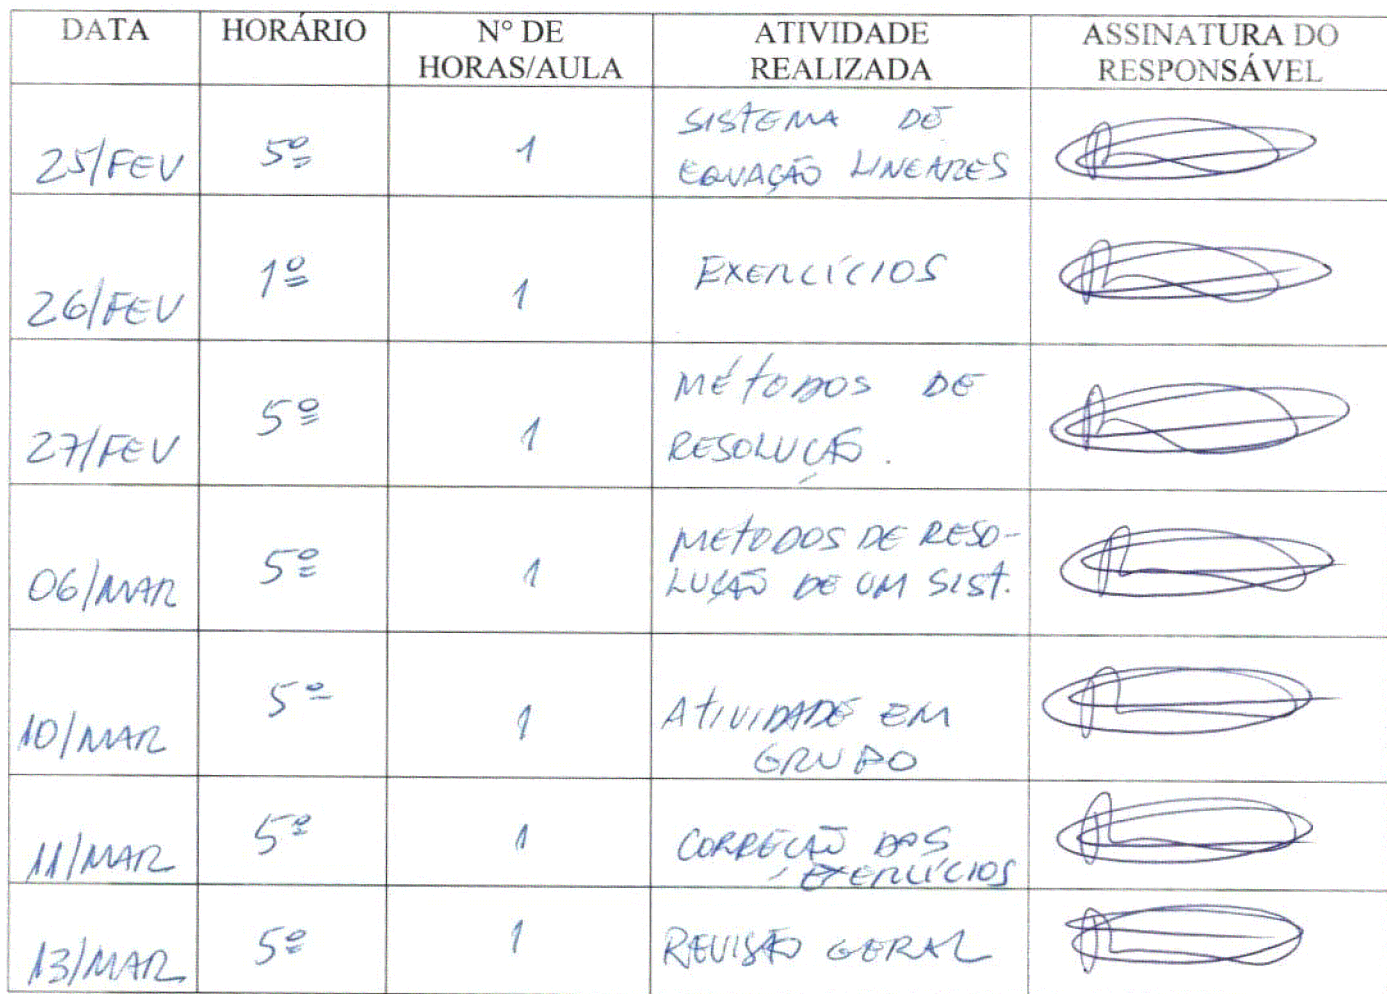 DATA HORÁRIO N° DE HORAS/AULA ATIVIDADE REALIZADA ASSINATURA DO RESPONSÁVEL
25/FEV 5º 1 SISTEMA DE
EQUAÇÃO LINEARES
26/FEV 1º 1 EXERCÍCIOS
27/FEV 5º 1 MÉTODOS DE
RESOLUÇÃO.
06/MAR 5º 1 METODOS DE RESO-
LUÇÃO DE UM SIST.
10/MAR 5º 1 ATIVIDADE EM
GRUPO
11/MAR 5º 1 CORREÇÃO DOS
EXERCÍCIOS
13/MAR 5º 1 REVISÃO GERAL